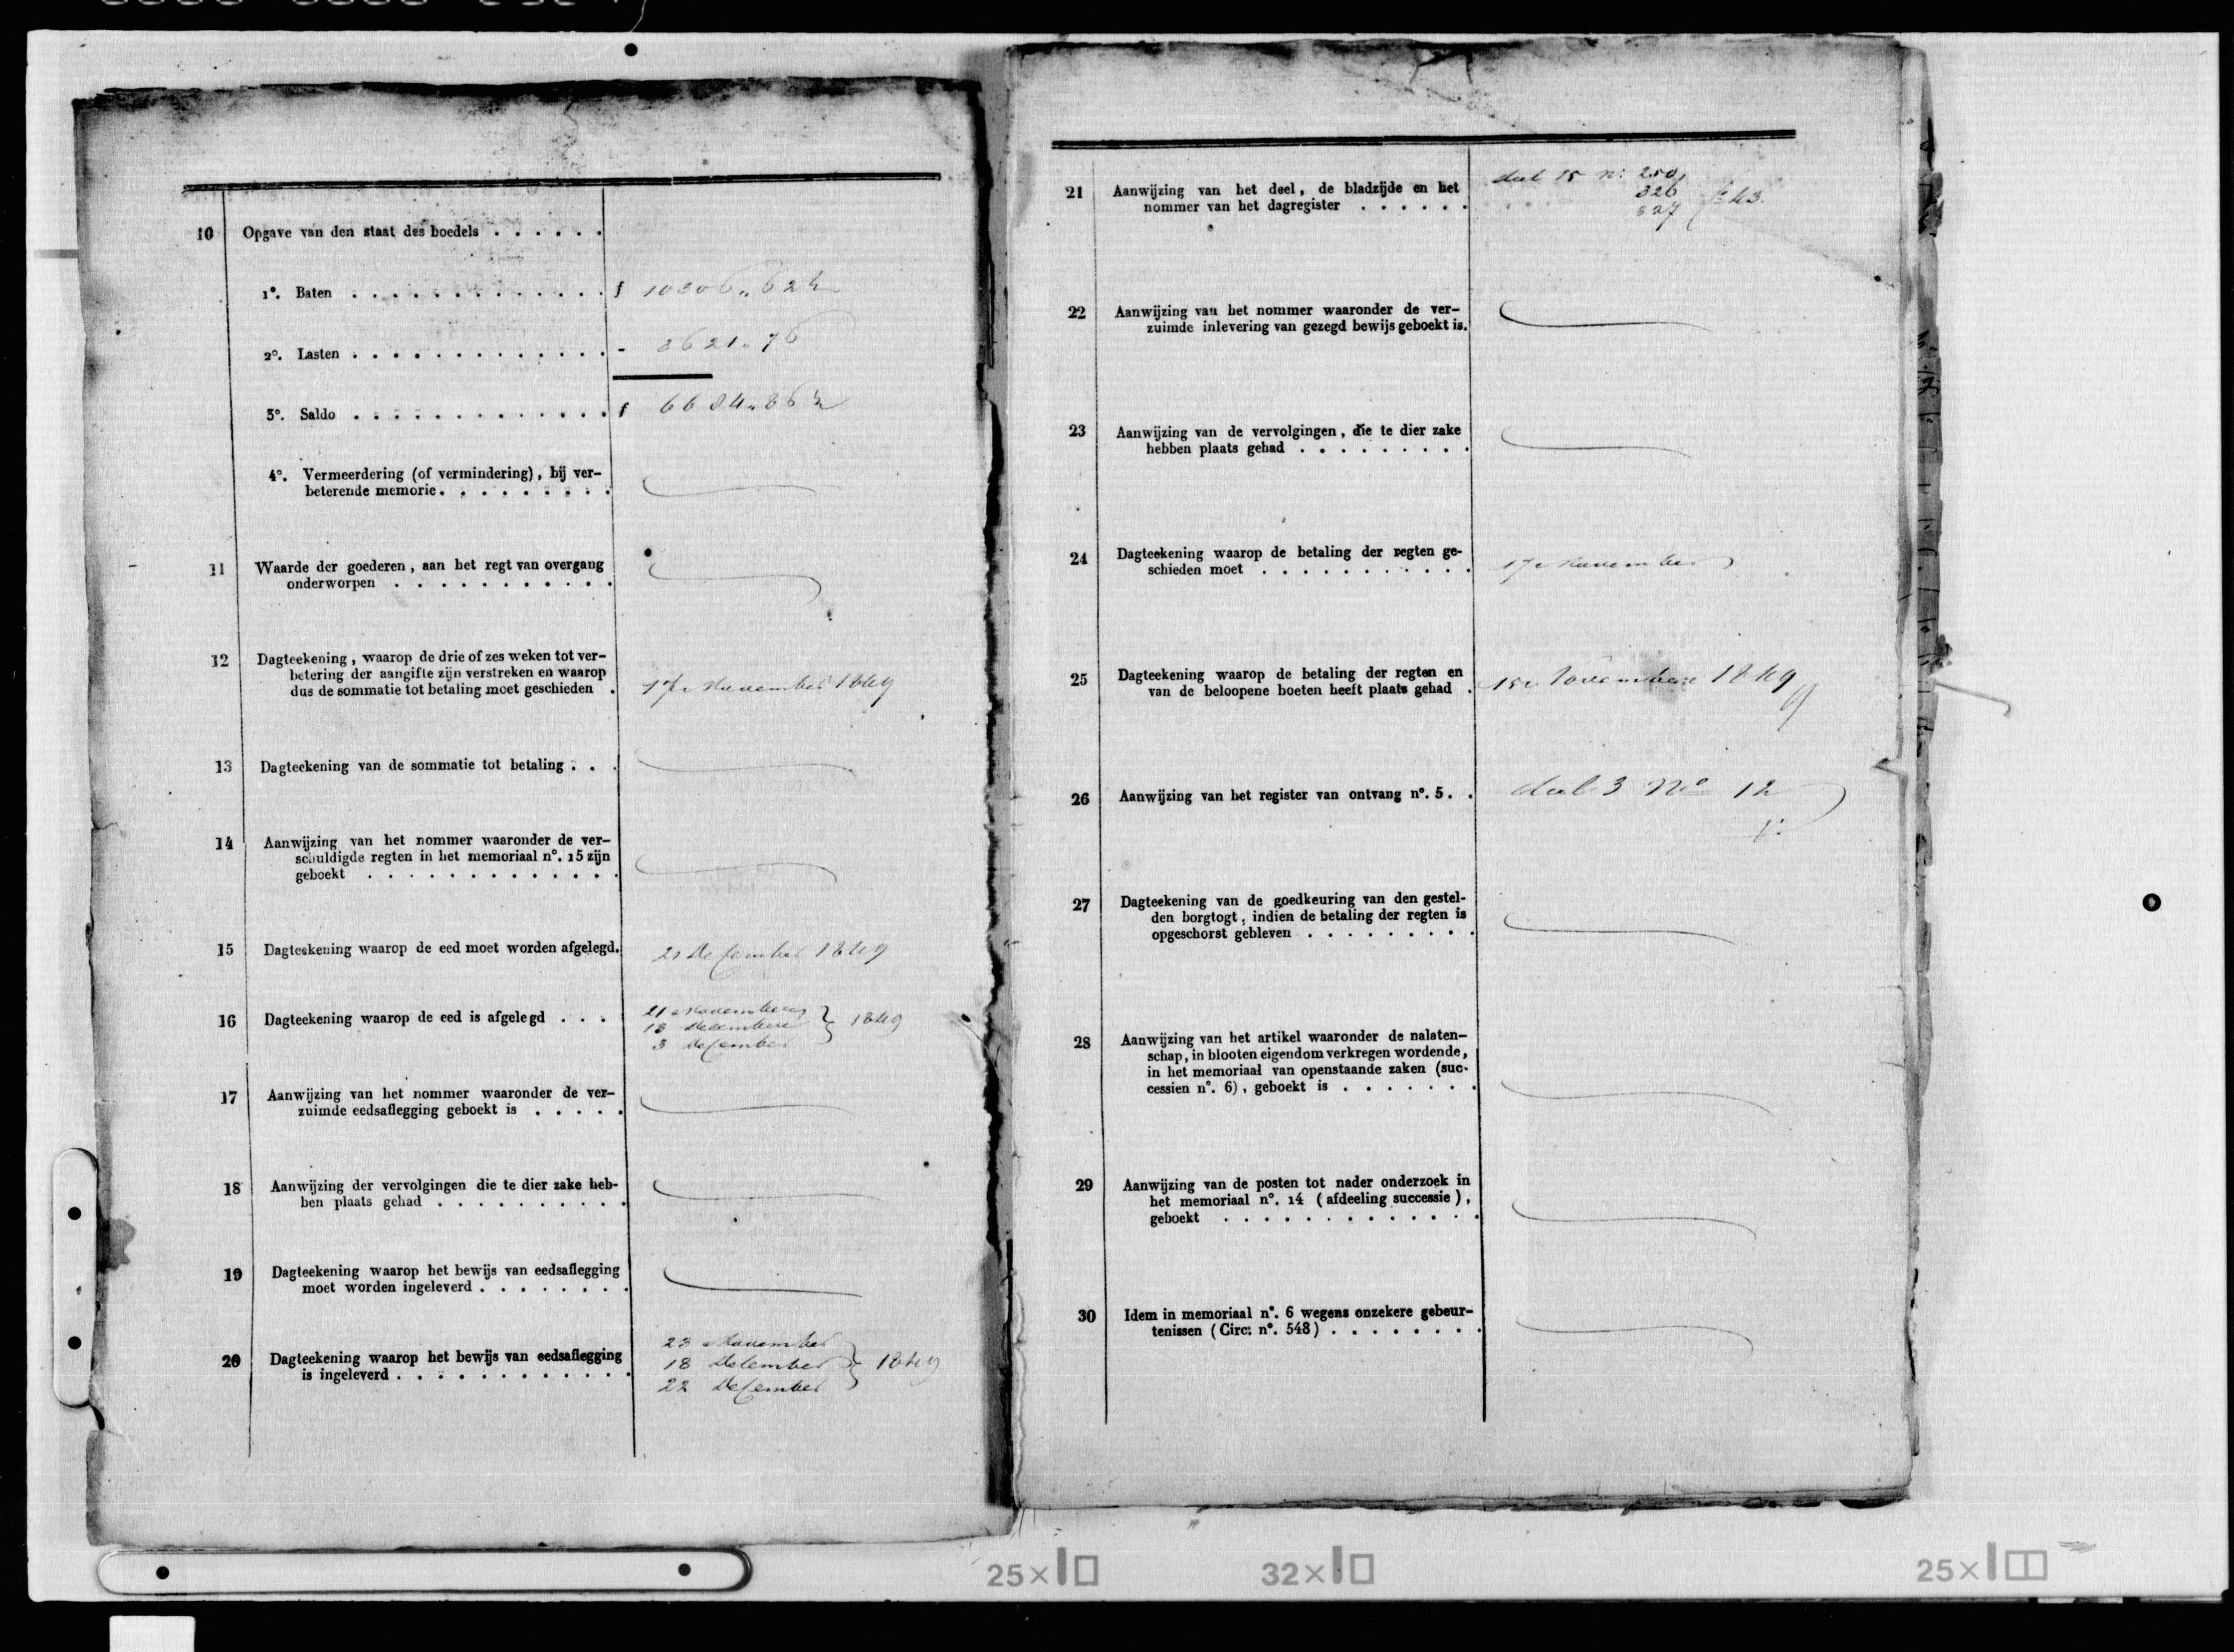 10 Opgave van den staat des boedels . . . . . .
1°. Baten . . . . . . . . . . . . . f 10306 „ 62½
2°. Lasten . . . . . . . . . . . . . - 3621 „ 76
3°. Saldo . . . . . . . . . . . . . f 6684 „ 86½
4°. Vermeerdering (of vermindering), bij ver-
beterende memorie. . . . . . . . .
11 Waarde der goederen, aan het regt van overgang
onderworpen . . . . . . . . . . .
12 Dagteekening, waarop de drie of zes weken tot ver-
betering der aangifte zijn verstreken en waarop
dus de sommatie tot betaling moet geschieden . 17 November 1849
13 Dagteekening van de sommatie tot betaling . . .
14 Aanwijzing van het nommer waaronder de ver-
schuldigde regten in het memoriaal n°. 15 zijn
geboekt . . . . . . . . . . . . .
15 Dagteekening waarop de eed moet worden afgelegd. 21 December 1849
16 Dagteekening waarop de eed is afgelegd . . .
21 November
18 December } 1849
3 December
17 Aanwijzing van het nommer waaronder de ver-
zuimde eedsaflegging geboekt is . . . . .
18 Aanwijzing der vervolgingen die te dier zake heb-
ben plaats gehad . . . . . . . . . .
19 Dagteekening waarop het bewijs van eedsaflegging
moet worden ingeleverd . . . . . . . .
20 Dagteekening waarop het bewijs van eedsaflegging
is ingeleverd . . . . . . . . . . . .
23 November
18 December } 1849
22 December
21 Aanwijzing van het deel, de bladzijde en het
nommer van het dagregister . . . . . .
deel 15 n: 250
326
327
22 Aanwijzing van het nommer waaronder de ver-
zuimde inlevering van gezegd bewijs geboekt is.
23 Aanwijzing van de vervolgingen, die te dier zake
hebben plaats gehad . . . . . . . . .
24 Dagteekening waarop de betaling der regten ge-
schieden moet . . . . . . . . . . . 17 November
25 Dagteekening waarop de betaling der regten en
van de beloopene boeten heeft plaats gehad . 15 November 1849
26 Aanwijzing van het register van ontvang n°. 5. . deel 3 N° 12
27 Dagteekening van de goedkeuring van den gestel-
den borgtogt, indien de betaling der regten is
opgeschorst gebleven . . . . . . . . .
28 Aanwijzing van het artikel waaronder de nalaten-
schap, in blooten eigendom verkregen wordende,
in het memoriaal van openstaande zaken (suc-
cessien n°. 6), geboekt is . . . . . . .
29 Aanwijzing van de posten tot nader onderzoek in
het memoriaal n°. 14 (afdeeling successie),
geboekt . . . . . . . . . . . . .
30 Idem in memoriaal n°. 6 wegens onzekere gebeur-
tenissen (Circ: n°. 548) . . . . . . . .
25×
32×
25×